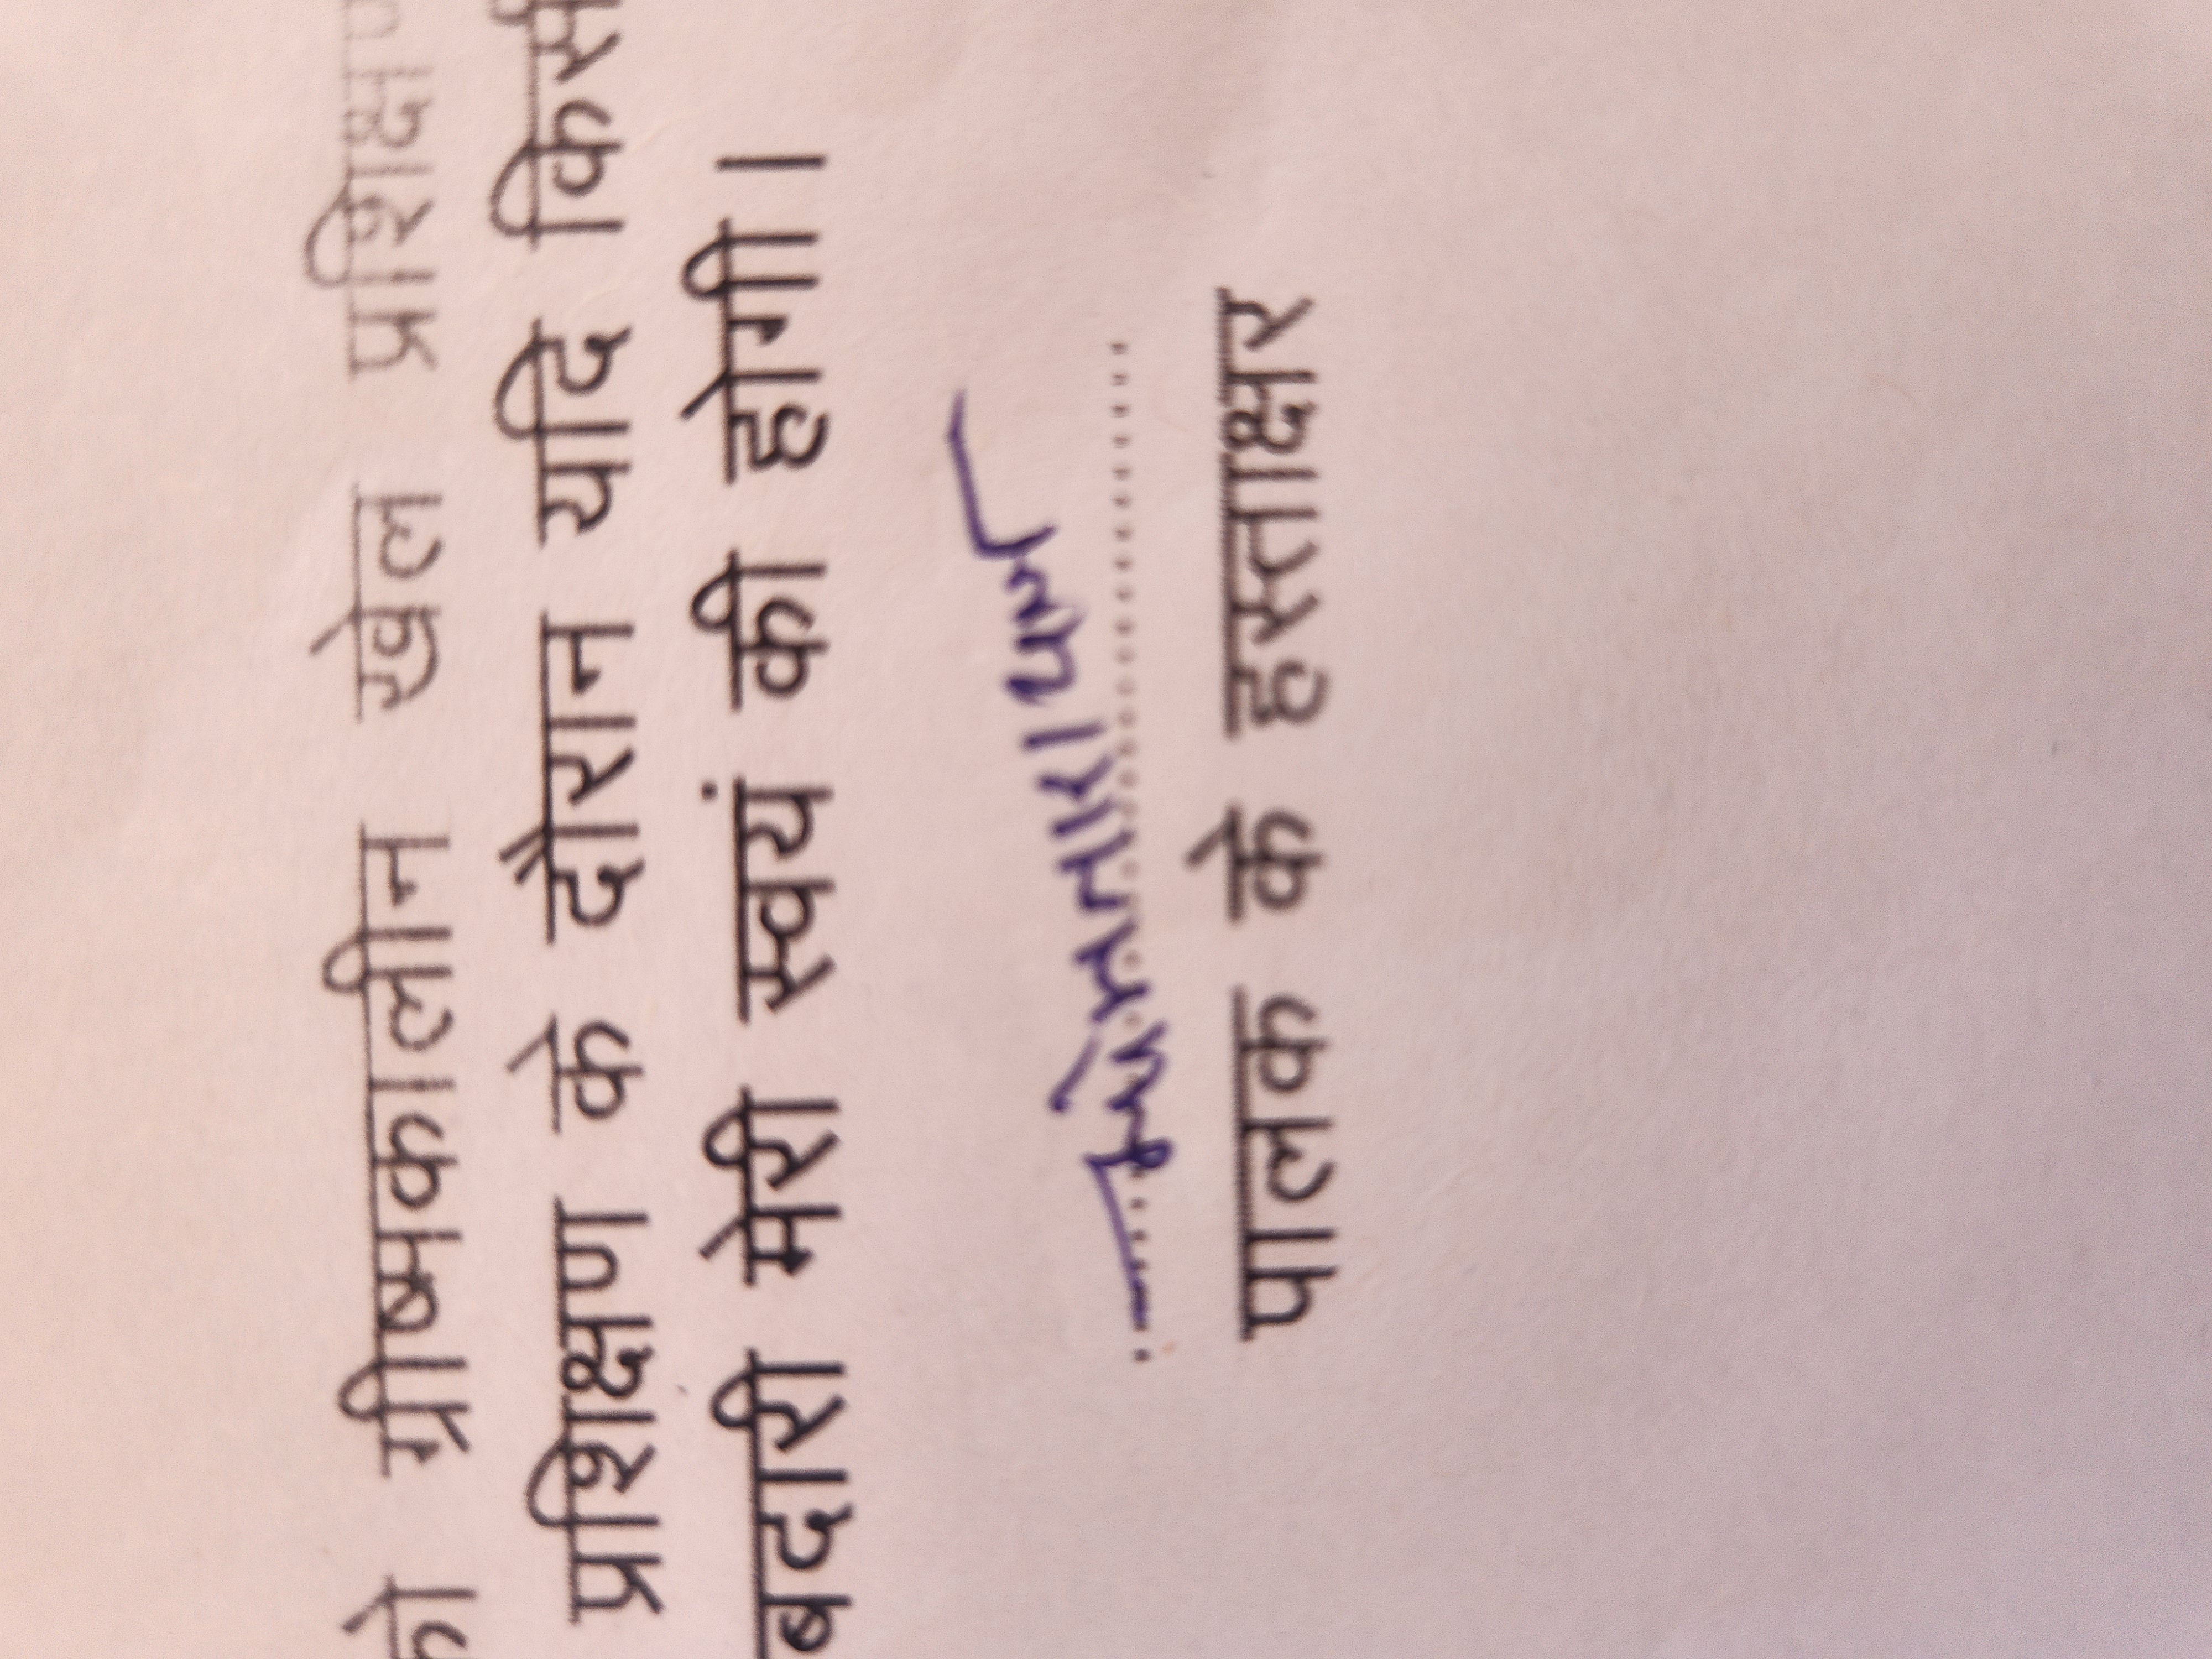 को ग्रीष्मकालीन खेल प्रशिक्षण
प्रशिक्षण के दौरान यदि किसी
बदारी मेरी स्वयं की होगी।
पालक के हस्ताक्षर